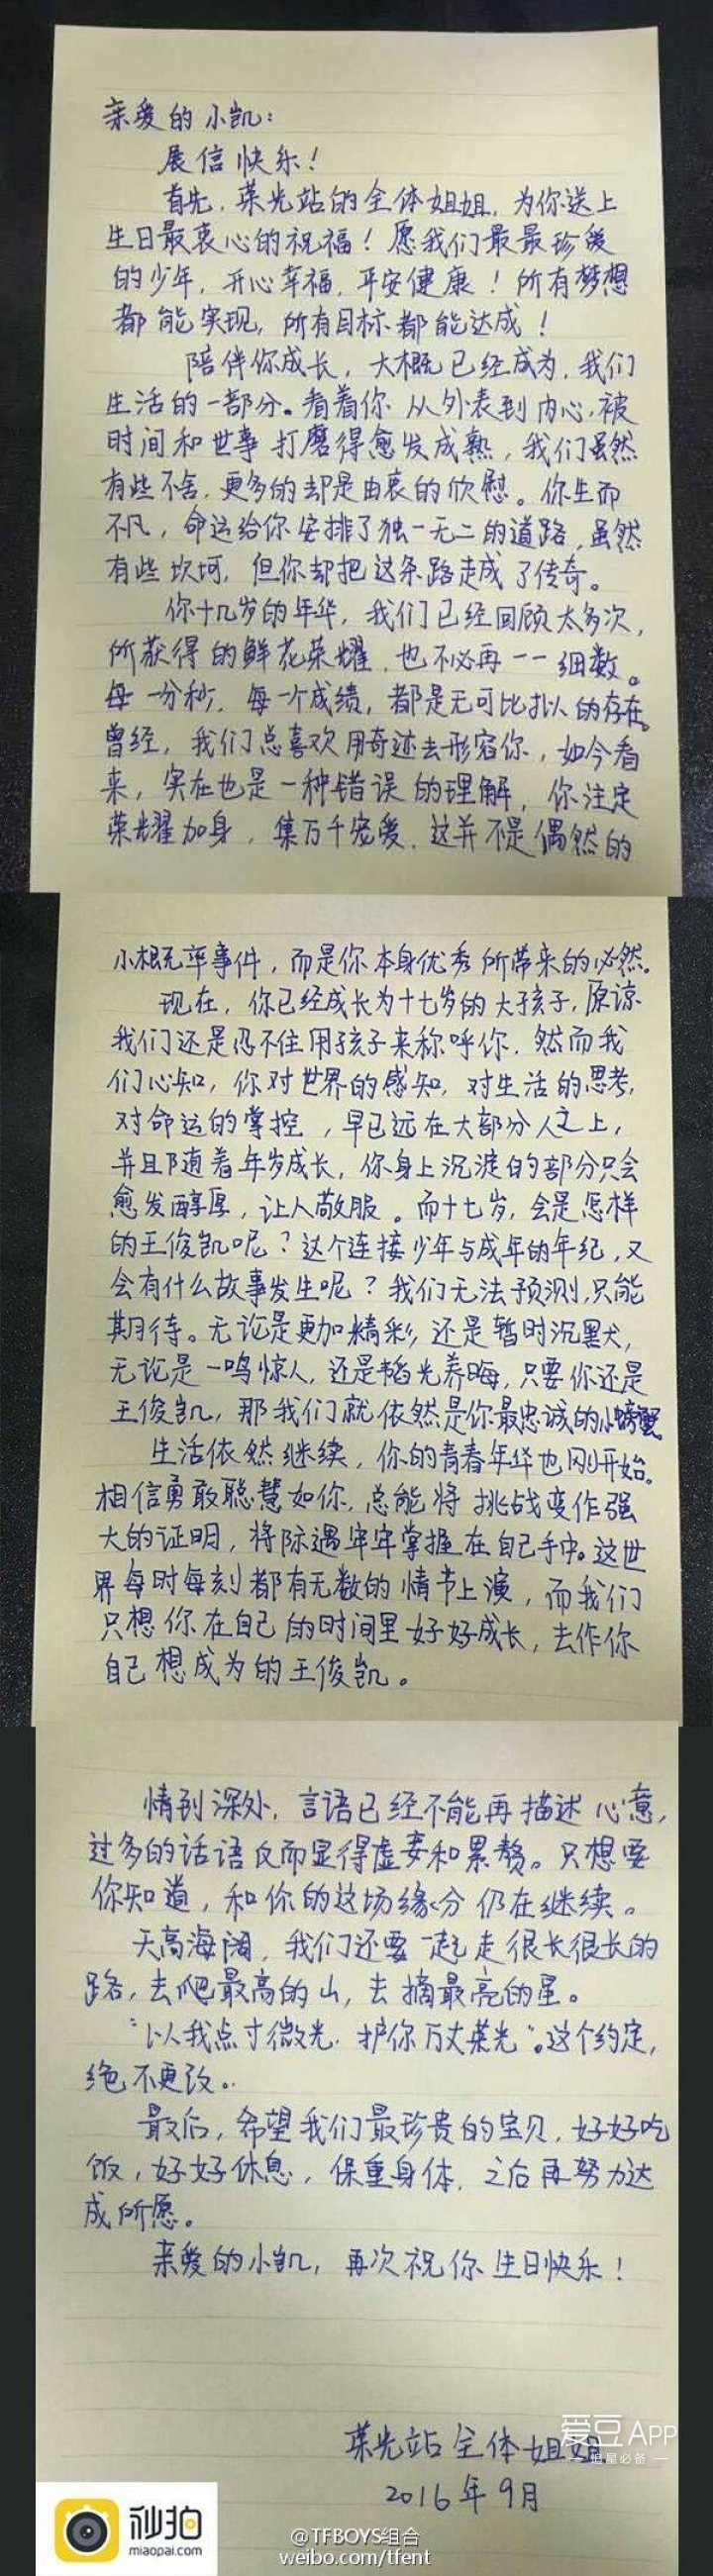 亲爱的小凯：
展信快乐！
首先，荣光站的全体姐姐，为你送上
生日最衷心的祝福！愿我们最最珍爱
的少年，开心幸福，平安健康！所有梦想
都能实现，所有目标都能达成！
陪伴你成长，大概已经成为，我们
生活的一部分。看着你从外表到内心，被
时间和世事打磨得愈发成熟，我们虽然
有些不舍，更多的却是由衷的欣慰。你生而
不凡，命运给你安排了独一无二的道路，虽然
有些坎坷，但你却把这条路走成了传奇。
你十几岁的年华，我们已经回顾太多次，
所获得的鲜花荣耀，也不必再一一细数。
每一分秒，每一个成绩，都是无可比拟的存在。
曾经，我们总喜欢用奇迹去形容你，如今看
来，实在也是一种错误的理解，你注定
荣耀加身，集万千宠爱，这并不是偶然的
小概率事件，而是你本身优秀所带来的必然。
现在，你已经成长为十七岁的大孩子，原谅
我们还是忍不住用孩子来称呼你，然而我
们心知，你对世界的感知，对生活的思考，
对命运的掌控，早已远在大部分人之上，
并且随着年岁成长，你身上沉淀的部分只会
愈发醇厚，让人敬服。而十七岁，会是怎样
的王俊凯呢？这个连接少年与成年的年纪，又
会有什么故事发生呢？我们无法预测，只能
期待。无论是更加精彩，还是暂时沉默，
无论是一鸣惊人，还是韬光养晦，只要你还是
王俊凯，那我们就依然是你最忠诚的小螃蟹
生活依然继续，你的青春年华也刚开始。
相信勇敢聪慧如你，总能将挑战变作强
大的证明，将际遇牢牢掌握在自己手中。这世
界每时每刻都有无数的情节上演，而我们
只想你在自己的时间里好好成长，去作你
自己想成为的王俊凯。
情到深处，言语已经不能再描述心意，
过多的话语反而显得虚妄和累赘。只想要
你知道，和你的这场缘分仍在继续。
天高海阔，我们还要一起走很长很长的
路，去爬最高的山，去摘最亮的星。
“以我点寸微光，护你万丈荣光”。这个约定，
绝不更改。
最后，希望我们最珍贵的宝贝，好好吃
饭，好好休息，保重身体，之后再努力达
成所愿。
亲爱的小凯，再次祝你生日快乐！
荣光站全体姐姐
2016年9月
爱豆APP
追星必备
秒拍
miaopai.com
@TFBOYS组合
weibo.com/tfent